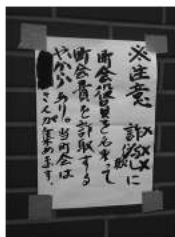 ※注意 詐欺に
町会役員と名乗って
町会費を詐取する
やからあり。当町会は
さんが集めます。